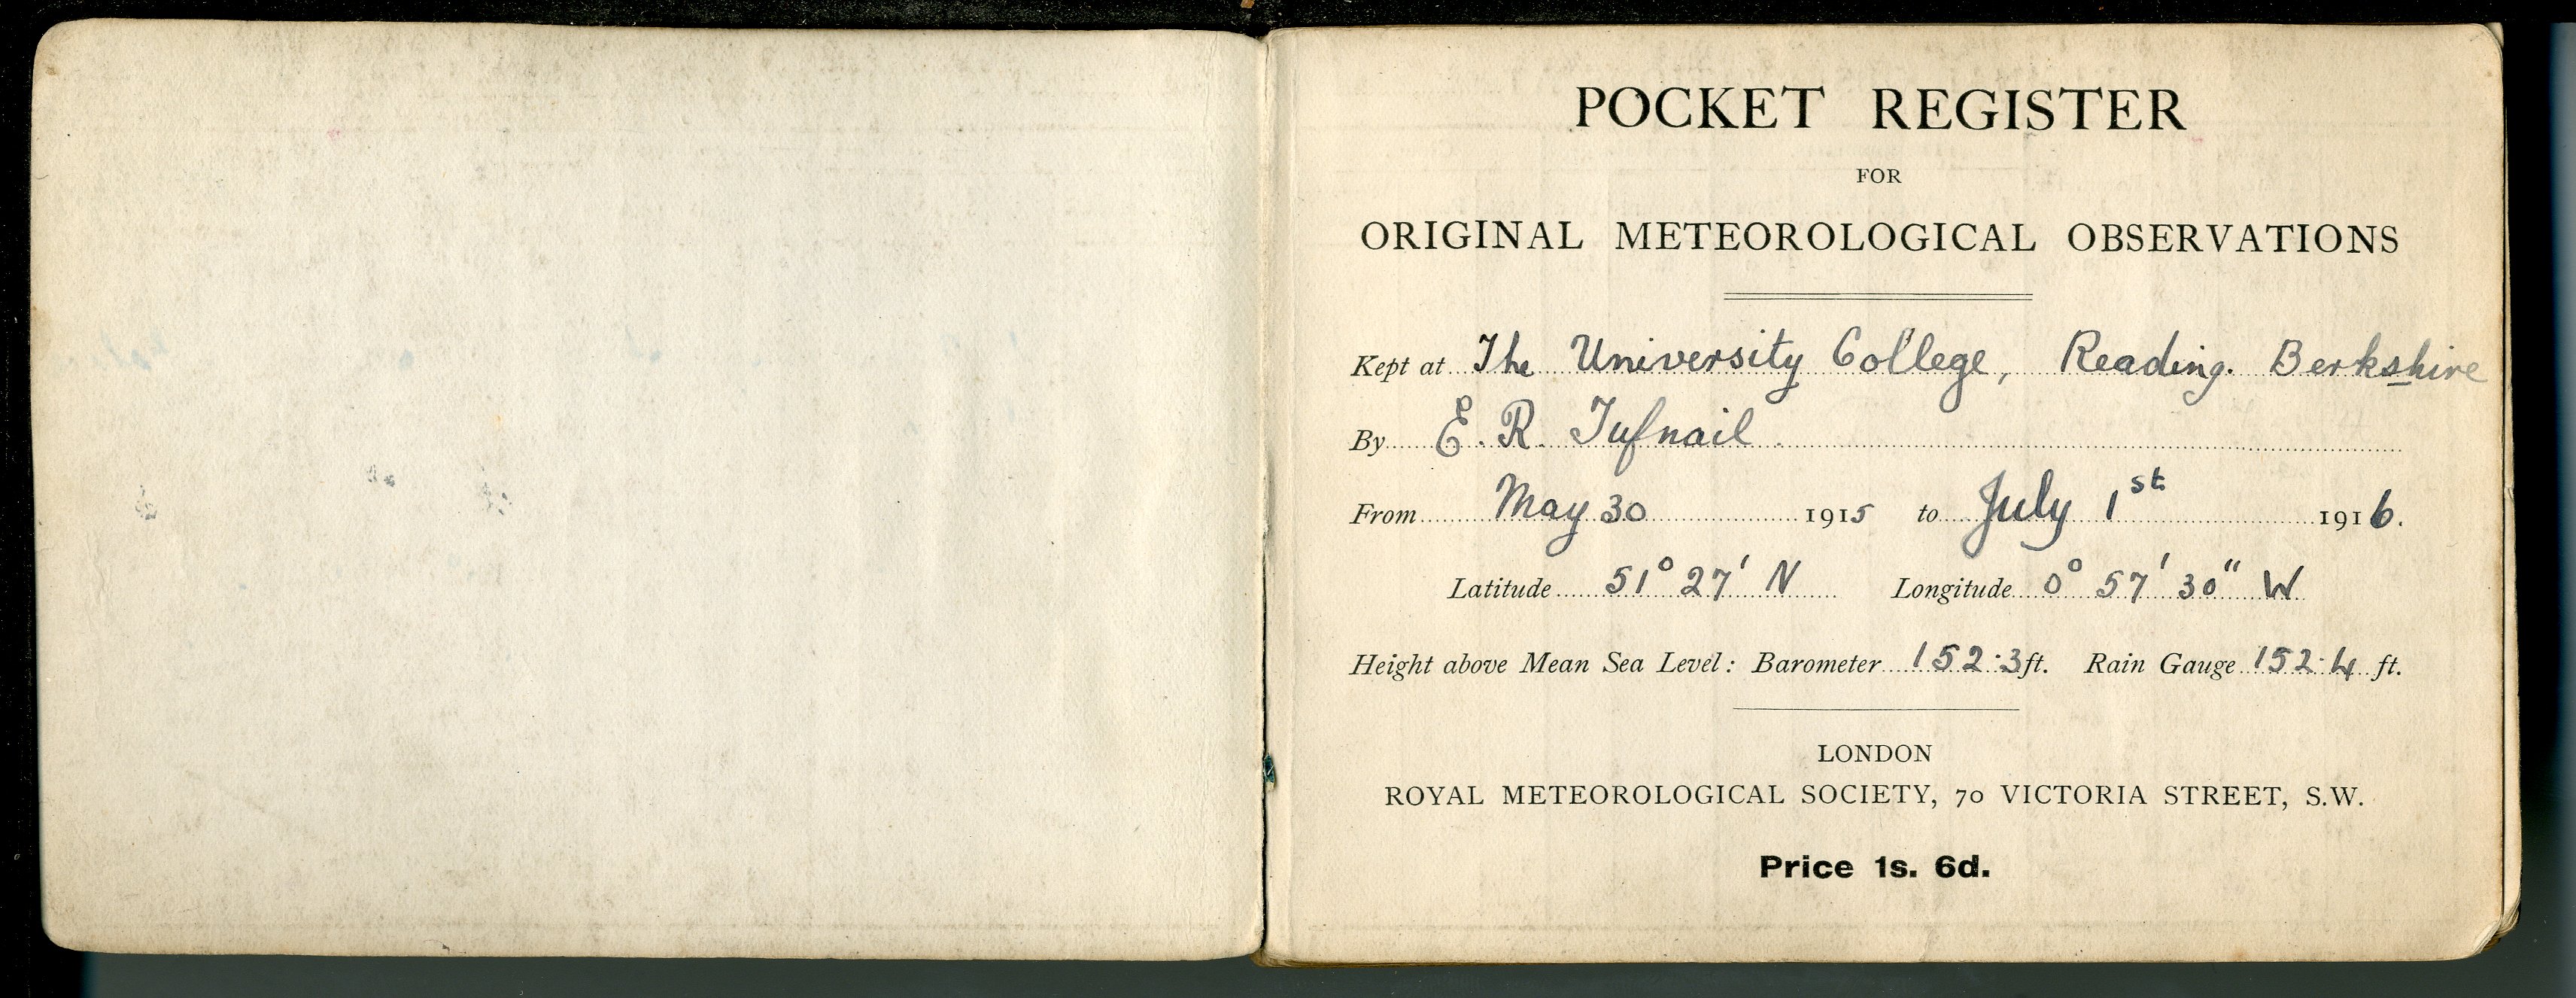 POCKET REGISTER
FOR
ORIGINAL METEOROLOGICAL OBSERVATIONS
Kept at The University College, Reading. Berkshire
By E. R. Tufnail.
From May 30 1915 to July 1st 1916.
Latitude 51° 27' N Longitude 0° 57' 30" W
Height above Mean Sea Level: Barometer 152.3 ft. Rain Gauge 152.4 ft.
LONDON
ROYAL METEOROLOGICAL SOCIETY, 70 VICTORIA STREET, S.W.
Price 1s. 6d.